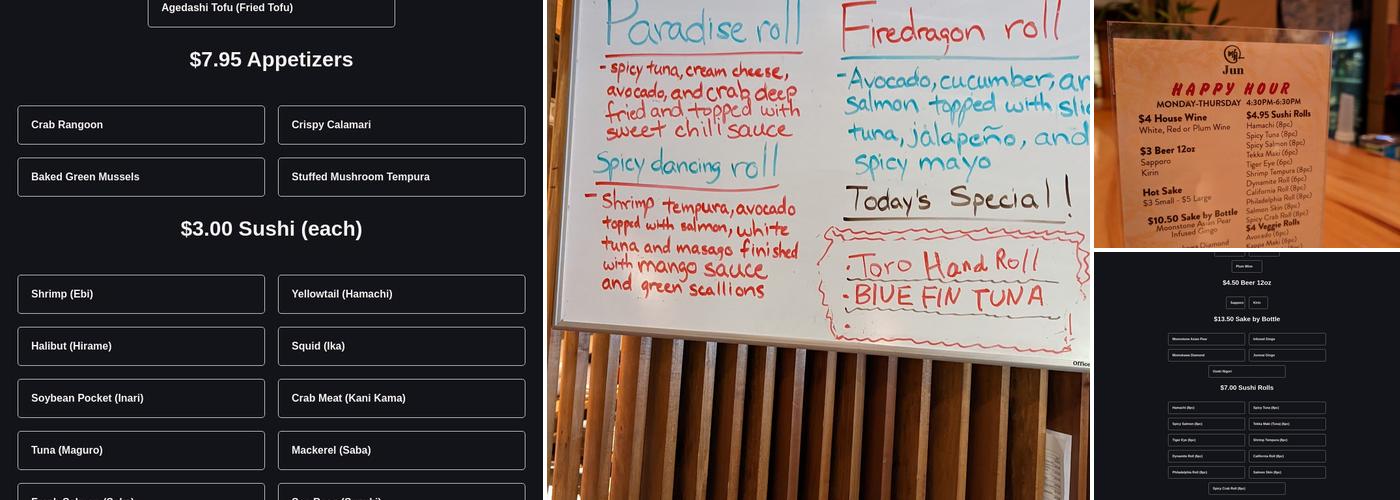 Agedashi Tofu (Fried Tofu)
$7.95 Appetizers
Crab Rangoon
Crispy Calamari
Baked Green Mussels
Stuffed Mushroom Tempura
$3.00 Sushi (each)
Shrimp (Ebi)
Yellowtail (Hamachi)
Halibut (Hirame)
Squid (Ika)
Soybean Pocket (Inari)
Crab Meat (Kani Kama)
Tuna (Maguro)
Mackerel (Saba)
Paradise roll
- spicy tuna, cream cheese,
avocado, and crab deep
fried and topped with
sweet chili sauce
Spicy dancing roll
- Shrimp tempura, avocado
topped with salmon, white
tuna and masago finished
with mango sauce
and green scallions
Firedragon roll
- Avocado, cucumber, an
salmon topped with slic
tuna, jalapeño, and
spicy mayo
Today's Special!
· Toro Hand Roll
· BLUE FIN TUNA
office
Jun
HAPPY HOUR
MONDAY-THURSDAY 4:30PM-6:30PM
$4 House Wine
White, Red or Plum Wine
$3 Beer 12oz
Sapporo
Kirin
Hot Sake
$3 Small - $5 Large
$10.50 Sake by Bottle
Moonstone Asian Pear
Infused Gingo
Diamond
$4.95 Sushi Rolls
Hamachi (8pc)
Spicy Tuna (8pc)
Spicy Salmon (8pc)
Tekka Maki (6pc)
Tiger Eye (6pc)
Shrimp Tempura (8pc)
Dynamite Roll (6pc)
California Roll (8pc)
Philadelphia Roll (8pc)
Salmon Skin (8pc)
Spicy Crab Roll (8pc)
$4 Veggie Rolls
Avocado (6pc)
Kappa Maki (6pc)
Plum Wine
$4.50 Beer 12oz
Sapporo
Kirin
$13.50 Sake by Bottle
Moonstone Asian Pear
Infused Gingo
Moonstone Diamond
Junmai Gingo
Ozeki Nigori
$7.00 Sushi Rolls
Hamachi (8pc)
Spicy Tuna (8pc)
Spicy Salmon (8pc)
Tekka Maki (Tuna) (6pc)
Tiger Eye (6pc)
Shrimp Tempura (8pc)
Dynamite Roll (6pc)
California Roll (8pc)
Philadelphia Roll (8pc)
Salmon Skin (8pc)
Spicy Crab Roll (8pc)